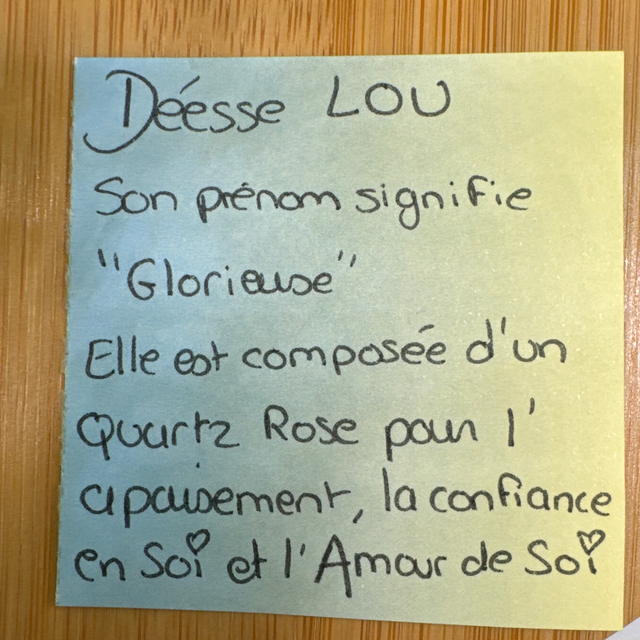 Déesse LOU
Son prénom signifie
"Glorieuse"
Elle est composée d'un
Quartz Rose pour l'
apaisement, la confiance
en Soi et l'Amour de Soi